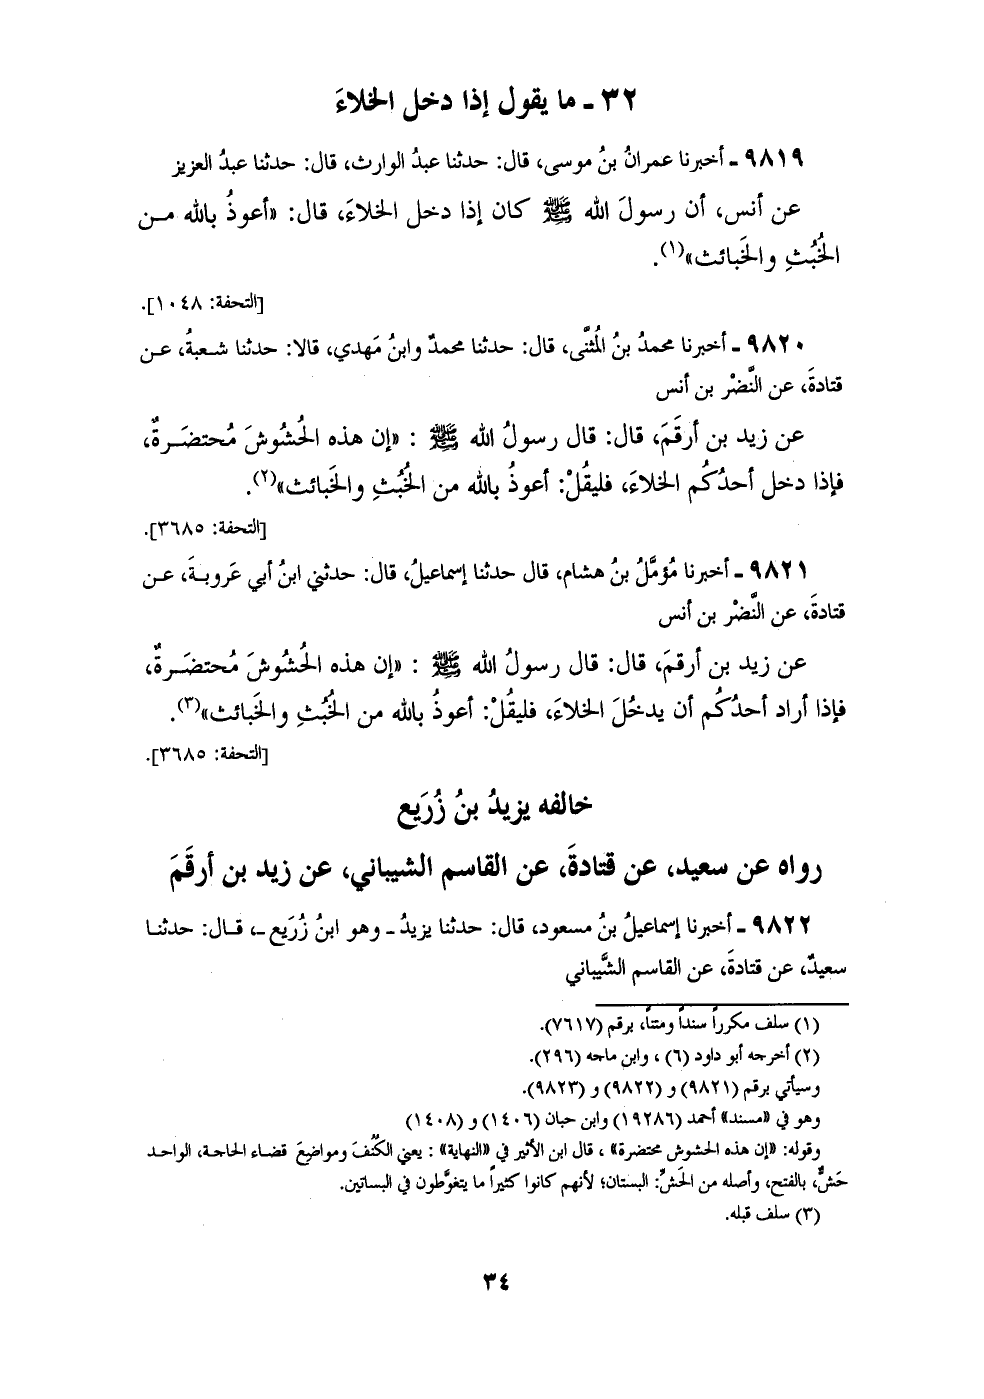 ٣٢ ـ ما يقول إذا دخل الخلاءَ
٩٨١٩ ـ أخبرنا عمرانُ بنُ موسى، قال: حدثنا عبدُ الوارث، قال: حدثنا عبدُ العزيز
عن أنس، أن رسولَ الله ﷺ كان إذا دخل الخلاءَ، قال: «أعوذُ بالله مـن
الخُبُثِ والخَبائث»(١).
[التحفة: ١٠٤٨].
٩٨٢٠ ـ أخبرنا محمدُ بنُ المُثنَّى، قال: حدثنا محمدٌ وابنُ مَهدي، قالا: حدثنا شـعبةُ، عـن
قتادةَ، عن النَّضْر بن أنس
عن زيد بن أرقَمَ، قال: قال رسولُ الله ﷺ : «إن هذه الحُشُوشَ مُحتضَـرةٌ،
فإذا دخل أحدُكُم الخلاءَ، فليقُلْ: أعوذُ بالله من الخُبُثِ والخَبائث»(٢).
[التحفة: ٣٦٨٥].
٩٨٢١ ـ أخبرنا مُؤمَّلُ بنُ هشام، قال حدثنا إسماعيلُ، قال: حدثني ابنُ أبي عَروبـةَ، عـن
قتادةَ، عن النَّضْر بن أنس
عن زيد بن أرقمَ، قال: قال رسولُ الله ﷺ : «إن هذه الحُشُوشَ مُحتضَـرةٌ،
فإذا أراد أحدُكُم أن يدخُلَ الخلاءَ، فليقُلْ: أعوذُ بالله من الخُبُثِ والخَبائث»(٣).
[التحفة: ٣٦٨٥].
خالفه يزيدُ بنُ زُرَيع
رواه عن سعيد، عن قتادةَ، عن القاسم الشيباني، عن زيد بن أرقَمَ
٩٨٢٢ ـ أخبرنا إسماعيلُ بنُ مسعود، قال: حدثنا يزيدُ ـ وهو ابنُ زُرَيع ـ، قـال: حدثنـا
سعيدٌ، عن قتادةَ، عن القاسم الشَّيباني
(١) سلف مكرراً سنداً ومتناً، برقم (٧٦١٧).
(٢) أخرجه أبو داود (٦) ، وابن ماجه (٢٩٦).
وسيأتي برقم (٩٨٢١) و (٩٨٢٢) و (٩٨٢٣).
وهو في «مسند» أحمد (١٩٢٨٦) وابن حبان (١٤٠٦) و (١٤٠٨)
وقوله: «إن هذه الحشوش محتضرة» ، قال ابن الأثير في «النهاية» : يعني الكُنُفَ ومواضِعَ قضـاء الحاجـة، الواحـد
حَشٌّ، بالفتح، وأصله من الحَشِّ: البستان؛ لأنهم كانوا كثيراً ما يتغوَّطون في البساتين.
(٣) سلف قبله.
٣٤